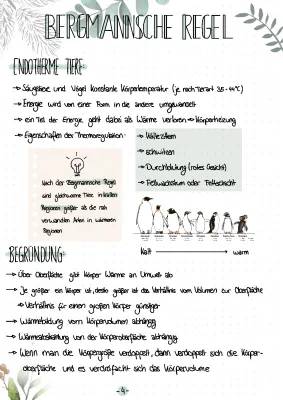 BERGMANNSCHE REGEL
ENDOTHERME TIERE
→ Säugetiere und Vögel konstante Körpertemperatur (je nach Tierart 35-44°C)
→ Energie wird von einer Form in die andere umgewandelt
→ ein Teil der Energie geht dabei als Wärme verloren → Körperheizung
→ Eigenschaften der Thermoregulation:
→ Kältezittern
→ schwitzen
→ Durchblutung (rotes Gesicht)
→ Fellwachstum oder Fettschicht
Nach der Bergmannsche Regel
sind gleichwarme Tiere in kalten
Regionen größer als die nah
verwandten Arten in wärmeren
Regionen
kalt → warm
BEGRÜNDUNG
→ Über Oberfläche gibt Körper Wärme an Umwelt ab
→ Je größer ein Körper ist, desto größer ist das Verhältnis vom Volumen zur Oberfläche
→ Verhältnis für einen großen Körper günstiger
→ Wärmebildung vom Körpervolumen abhängig
→ Wärmeabstrahlung von der Körperoberfläche abhängig
→ Wenn man die Körpergröße verdoppelt, dann verdoppelt sich die Körper-
oberfläche und es verdreifacht sich das Körpervolumen